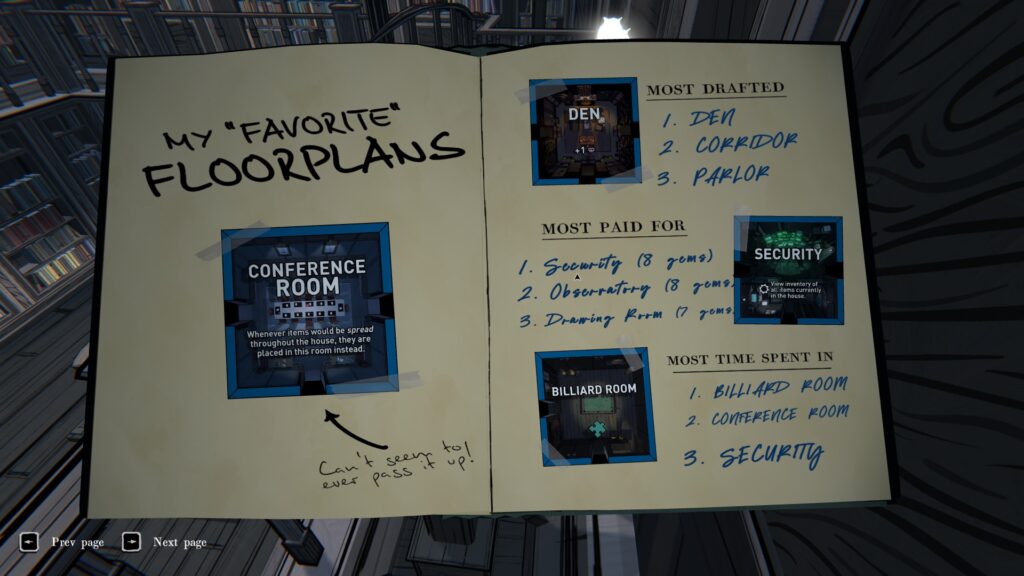 MY "FAVORITE"
FLOORPLANS
CONFERENCE
ROOM
Whenever items would be spread
throughout the house, they are
placed in this room instead.
Can't seem to
ever pass it up!
DEN
+1
MOST DRAFTED
1. DEN
2. CORRIDOR
3. PARLOR
MOST PAID FOR
1. Security (8 gems)
2. Observatory (8 gems)
3. Drawing Room (7 gems
SECURITY
View inventory of
all items currently
in the house.
BILLIARD ROOM
MOST TIME SPENT IN
1. BILLIARD ROOM
2. CONFERENCE ROOM
3. SECURITY
Prev page
Next page